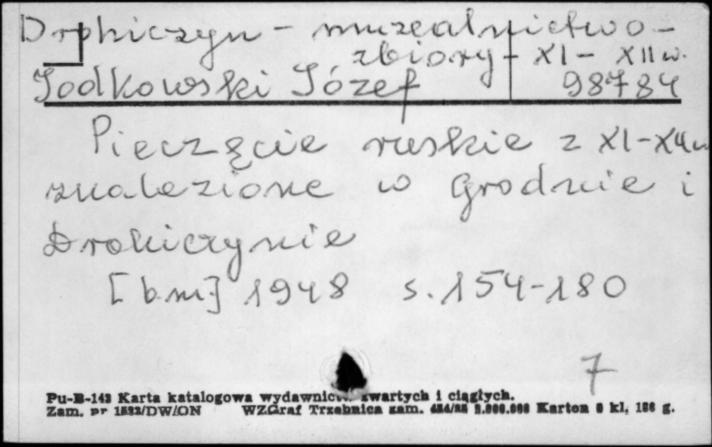 Drohiczyn - muzealnictwo -
zbiory - XI - XII w.
Jodkowski Józef 98784
Pieczęcie ruskie z XI-XII w.
znalezione w Grodnie i
Drohiczynie
[bm] 1948 s. 154-180
7
Pu-B-143 Karta katalogowa wydawnictw zwartych i ciągłych.
Zam. nr 1582/DW/ON WZGraf Trzebnica zam. Karton kl.